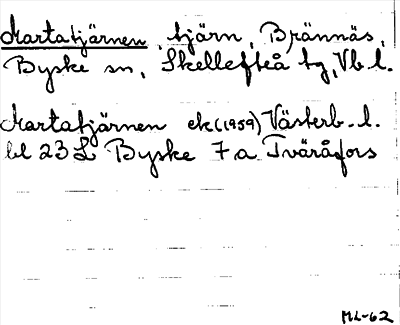 Martatjärnen, tjärn, Brännäs,
Byske sn, Skellefteå tg, Vb l.
Martatjärnen ek (1959) Västerb. l.
bl 23 L Byske 7 a Tväråfors
ML-62